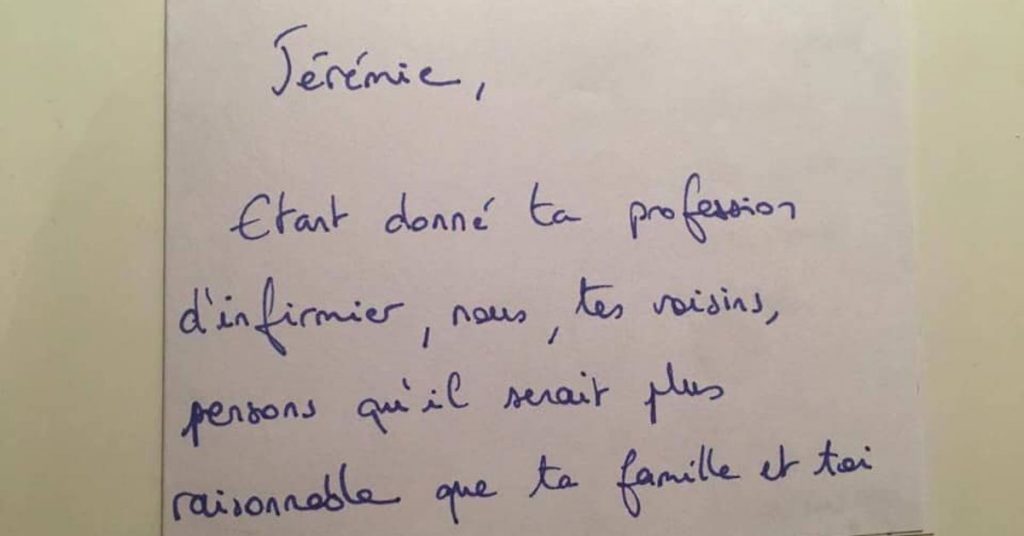 Jérémie,
Etant donné ta profession
d'infirmier, nous, tes voisins,
pensons qu'il serait plus
raisonnable que ta famille et toi